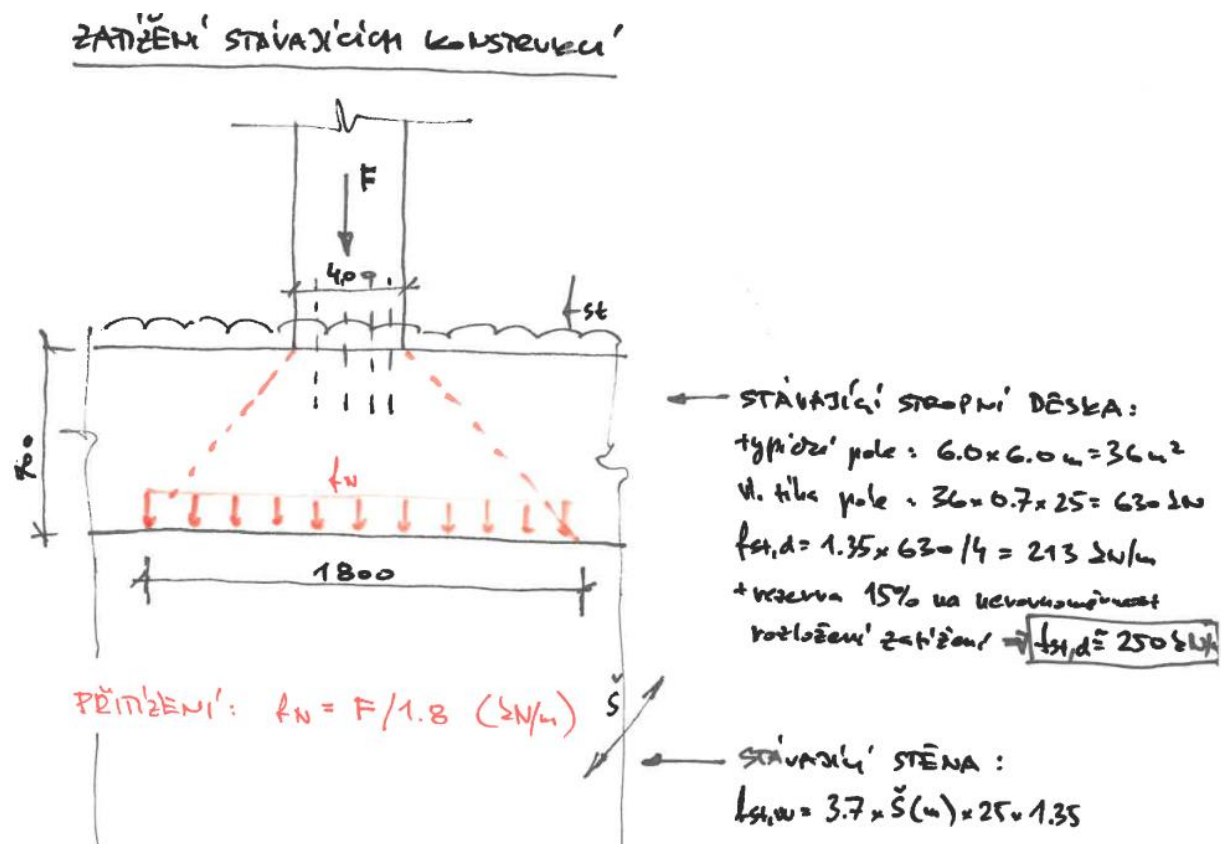 ZATÍŽENÍ STÁVAJÍCÍCH KONSTRUKCÍ
F
400
st
700
fN
1800
STÁVAJÍCÍ STROPNÍ DESKA:
typické pole: 6.0 x 6.0 m = 36 m²
vl. tíha pole: 36 x 0.7 x 25 = 630 kN
fst,d = 1.35 x 630 / 4 = 213 kN/m
+ rezerva 15% na nerovnoměrnost
rozložení zatížení ⇒ fst,d ≅ 250 kN/m
PŘITÍŽENÍ: fN = F/1.8 (kN/m)
Š
STÁVAJÍCÍ STĚNA:
fst,w = 3.7 x Š(m) x 25 x 1.35